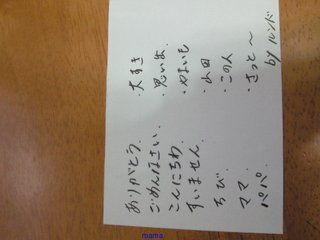 ありがとう.
ごめんなさい.
こんにちわ.
すいません.
ちび.
ママ.
パパ.
・大すき
・思いよ.
・やまいも
・山田
・この人
・さっと〜
by ルンド
mama